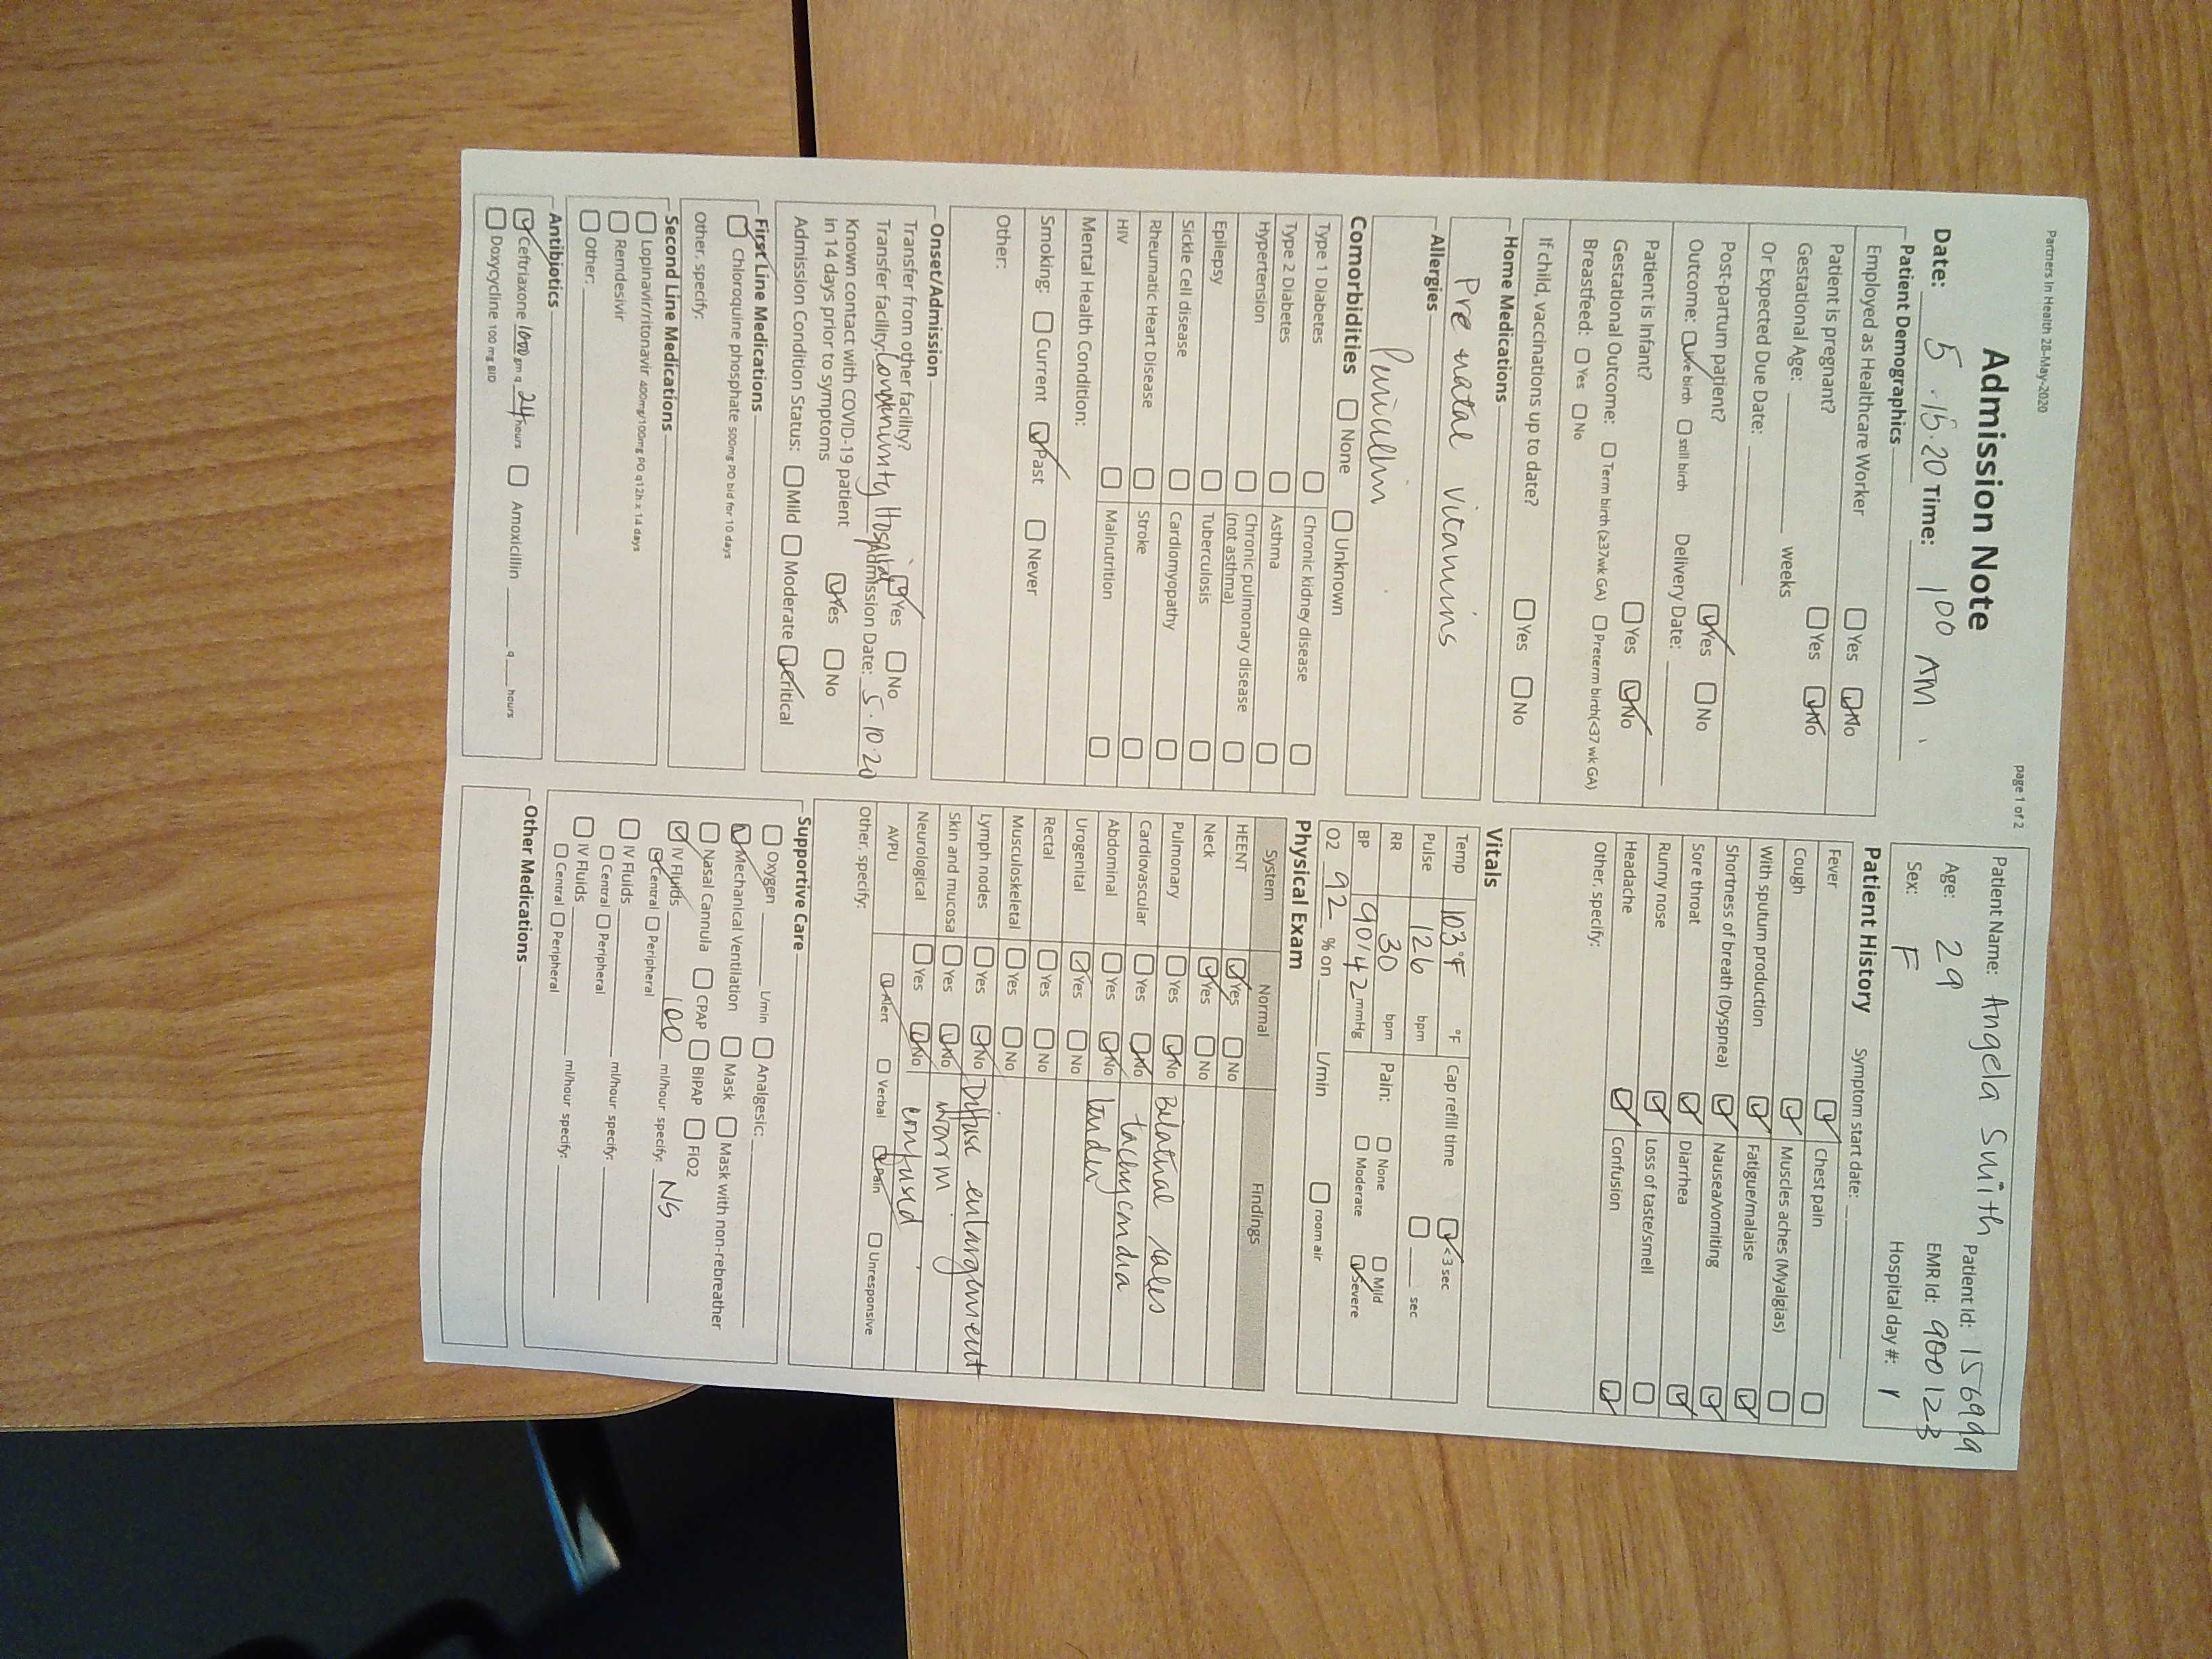 Partners In Health 28-May-2020
page 1 of 2
Admission Note
Date: 5.15.20 Time: 1 00 AM
Patient Name: Angela Smith Patient Id: 156999
Age: 29 EMR Id: 900123
Sex: F Hospital day #: 1
Patient Demographics
Employed as Healthcare Worker ☐ Yes ☑ No
Patient is pregnant? ☐ Yes ☑ No
Gestational Age: ______ weeks
Or Expected Due Date: ______
Post-partum patient? ☑ Yes ☐ No
Outcome: ☑ Live birth ☐ still birth Delivery Date: ______
Patient is Infant? ☐ Yes ☑ No
Gestational Outcome: ☐ Term birth (≥37wk GA) ☐ Preterm birth(<37 wk GA)
Breastfeed: ☐ Yes ☐ No
If child, vaccinations up to date? ☐ Yes ☐ No
Home Medications
Pre natal vitamins
Allergies
Penicellin
Comorbidities ☐ None ☐ Unknown
Type 1 Diabetes ☐ Chronic kidney disease ☐
Type 2 Diabetes ☐ Asthma ☐
Hypertension ☐ Chronic pulmonary disease (not asthma) ☐
Epilepsy ☐ Tuberculosis ☐
Sickle Cell disease ☐ Cardiomyopathy ☐
Rheumatic Heart Disease ☐ Stroke ☐
HIV ☐ Malnutrition ☐
Mental Health Condition:
Smoking: ☐ Current ☑ Past ☐ Never
Other:
Onset/Admission
Transfer from other facility? ☑ Yes ☐ No
Transfer facility: Community Hospital Admission Date: 5.10.20
Known contact with COVID-19 patient
in 14 days prior to symptoms ☑ Yes ☐ No
Admission Condition Status: ☐ Mild ☐ Moderate ☑ Critical
First Line Medications
☑ Chloroquine phosphate 500mg PO bid for 10 days
Other, specify:
Second Line Medications
☐ Lopinavir/ritonavir 400mg/100mg PO q12h x 14 days
☐ Remdesivir
☐ Other: ______
Antibiotics
☑ Ceftriaxone 1000 gm q 24 hours ☐ Amoxicillin ______ q ___ hours
☐ Doxycycline 100 mg BID
Patient History Symptom start date: ______
Fever ☑ Chest pain ☐
Cough ☑ Muscles aches (Myalgias) ☐
With sputum production ☑ Fatigue/malaise ☑
Shortness of breath (Dyspnea) ☑ Nausea/vomiting ☑
Sore throat ☑ Diarrhea ☑
Runny nose ☑ Loss of taste/smell ☐
Headache ☑ Confusion ☑
Other, specify:
Vitals
Temp 103°F °F Cap refill time ☑ <3 sec
Pulse 126 bpm ☐ ___ sec
RR 30 bpm Pain: ☐ None ☐ Mild
BP 90/42 mmHg ☐ Moderate ☑ Severe
O2 92 % on ______ L/min ☐ room air
Physical Exam
System Normal Findings
HEENT ☑ Yes ☐ No
Neck ☑ Yes ☐ No
Pulmonary ☐ Yes ☑ No Bilatural rales
Cardiovascular ☐ Yes ☑ No tachycardia
Abdominal ☐ Yes ☑ No tender
Urogenital ☑ Yes ☐ No
Rectal ☐ Yes ☐ No
Musculoskeletal ☐ Yes ☐ No
Lymph nodes ☐ Yes ☑ No Diffuse enlargement
Skin and mucosa ☐ Yes ☑ No warm
Neurological ☐ Yes ☑ No confused
AVPU ☑ Alert ☐ Verbal ☑ Pain ☐ Unresponsive
Other, specify:
Supportive Care
☐ Oxygen ______ L/min ☐ Analgesic: ______
☑ Mechanical Ventilation ☐ Mask ☐ Mask with non-rebreather
☐ Nasal Cannula ☐ CPAP ☐ BIPAP ☐ FIO2
☑ IV Fluids 100 ml/hour specify: NS
☑ Central ☐ Peripheral
☐ IV Fluids ______ ml/hour specify: ______
☐ Central ☐ Peripheral
☐ IV Fluids ______ ml/hour specify: ______
☐ Central ☐ Peripheral
Other Medications